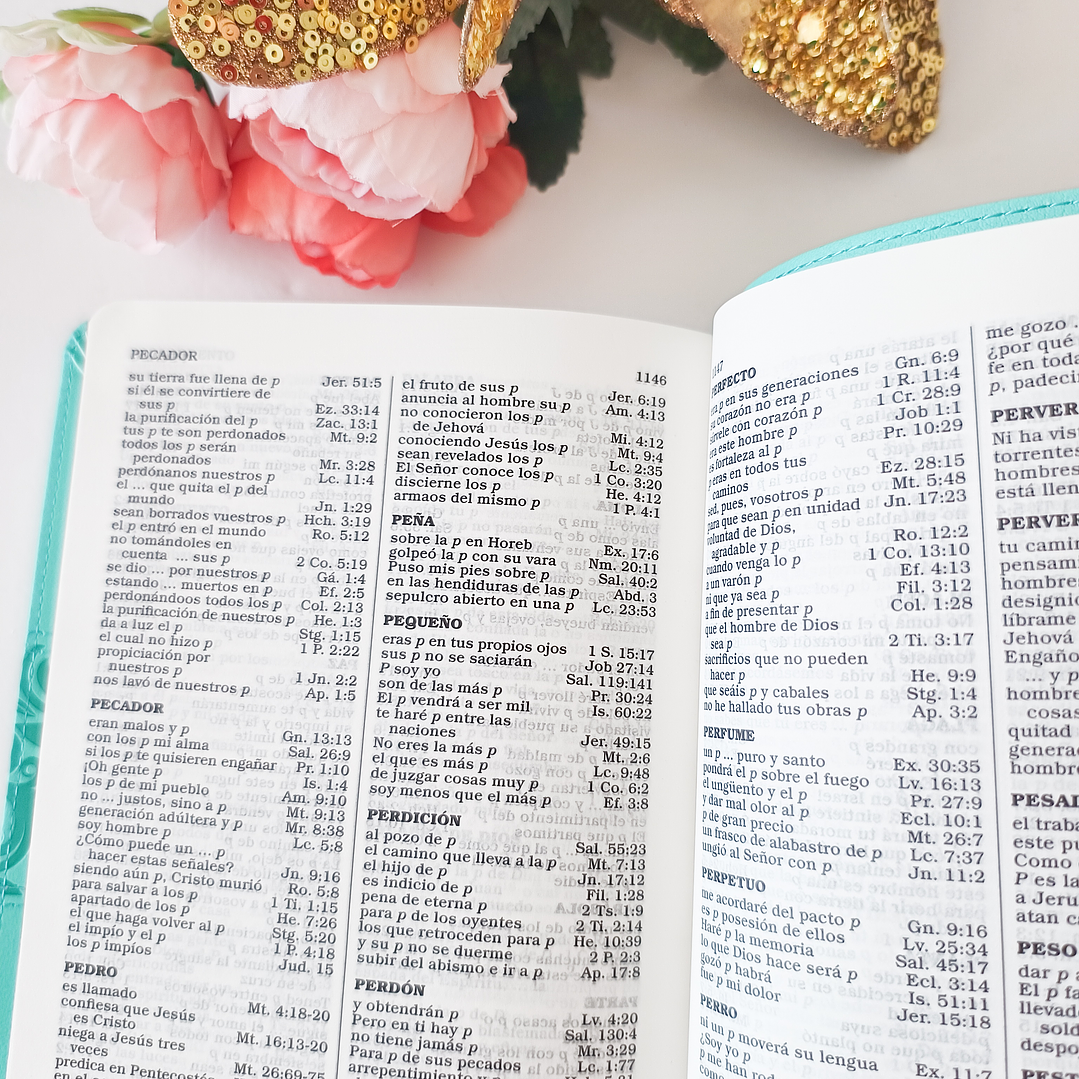 PECADOR
su tierra fue llena de p Jer. 51:5
si él se convirtiere de
sus p Ez. 33:14
la purificación del p Zac. 13:1
tus p te son perdonados Mt. 9:2
todos los p serán
perdonados Mr. 3:28
perdónanos nuestros p Lc. 11:4
el ... que quita el p del
mundo Jn. 1:29
sean borrados vuestros p Hch. 3:19
el p entró en el mundo Ro. 5:12
no tomándoles en
cuenta ... sus p 2 Co. 5:19
se dio ... por nuestros p Gá. 1:4
estando ... muertos en p Ef. 2:5
perdonándoos todos los p Col. 2:13
la purificación de nuestros p He. 1:3
da a luz el p Stg. 1:15
el cual no hizo p 1 P. 2:22
propiciación por
nuestros p 1 Jn. 2:2
nos lavó de nuestros p Ap. 1:5
PECADOR
eran malos y p Gn. 13:13
con los p mi alma Sal. 26:9
si los p te quisieren engañar Pr. 1:10
¡Oh gente p Is. 1:4
los p de mi pueblo Am. 9:10
no ... justos, sino a p Mt. 9:13
generación adúltera y p Mr. 8:38
soy hombre p Lc. 5:8
¿Cómo puede un ... p
hacer estas señales? Jn. 9:16
siendo aún p, Cristo murió Ro. 5:8
para salvar a los p 1 Ti. 1:15
apartado de los p He. 7:26
el que haga volver al p Stg. 5:20
el impío y el p 1 P. 4:18
los p impíos Jud. 15
PEDRO
es llamado Mt. 4:18-20
confiesa que Jesús
es Cristo Mt. 16:13-20
niega a Jesús tres
veces Mt. 26:69-75
predica en Pentecostés
1146
el fruto de sus p Jer. 6:19
anuncia al hombre su p Am. 4:13
no conocieron los p
de Jehová Mi. 4:12
conociendo Jesús los p Mt. 9:4
sean revelados los p Lc. 2:35
El Señor conoce los p 1 Co. 3:20
discierne los p He. 4:12
armaos del mismo p 1 P. 4:1
PEÑA
sobre la p en Horeb Ex. 17:6
golpeó la p con su vara Nm. 20:11
Puso mis pies sobre p Sal. 40:2
en las hendiduras de las p Abd. 3
sepulcro abierto en una p Lc. 23:53
PEQUEÑO
eras p en tus propios ojos 1 S. 15:17
sus p no se saciarán Job 27:14
P soy yo Sal. 119:141
son de las más p Pr. 30:24
El p vendrá a ser mil Is. 60:22
te haré p entre las
naciones Jer. 49:15
No eres la más p Mt. 2:6
el que es más p Lc. 9:48
de juzgar cosas muy p 1 Co. 6:2
soy menos que el más p Ef. 3:8
PERDICIÓN
al pozo de p Sal. 55:23
el camino que lleva a la p Mt. 7:13
el hijo de p Jn. 17:12
es indicio de p Fil. 1:28
pena de eterna p 2 Ts. 1:9
para p de los oyentes 2 Ti. 2:14
los que retroceden para p He. 10:39
y su p no se duerme 2 P. 2:3
subir del abismo e ir a p Ap. 17:8
PERDÓN
y obtendrán p Lv. 4:20
Pero en ti hay p Sal. 130:4
no tiene jamás p Mr. 3:29
Para p de sus pecados Lc. 1:77
arrepentimiento
PERFECTO
p en sus generaciones Gn. 6:9
su corazón no era p 1 R. 11:4
sírvele con corazón p 1 Cr. 28:9
este hombre p Job 1:1
es fortaleza al p Pr. 10:29
p eras en todos tus
caminos Ez. 28:15
sed, pues, vosotros p Mt. 5:48
para que sean p en unidad Jn. 17:23
voluntad de Dios,
agradable y p Ro. 12:2
cuando venga lo p 1 Co. 13:10
a un varón p Ef. 4:13
ni que ya sea p Fil. 3:12
a fin de presentar p Col. 1:28
que el hombre de Dios
sea p 2 Ti. 3:17
sacrificios que no pueden
hacer p He. 9:9
que seáis p y cabales Stg. 1:4
no he hallado tus obras p Ap. 3:2
PERFUME
un p ... puro y santo Ex. 30:35
pondrá el p sobre el fuego Lv. 16:13
el ungüento y el p Pr. 27:9
y dar mal olor al p Ecl. 10:1
p de gran precio Mt. 26:7
un frasco de alabastro de p Lc. 7:37
ungió al Señor con p Jn. 11:2
PERPETUO
me acordaré del pacto p Gn. 9:16
es p posesión de ellos Lv. 25:34
Haré p la memoria Sal. 45:17
lo que Dios hace será p Ecl. 3:14
gozó p habrá Is. 51:11
fue p mi dolor Jer. 15:18
PERRO
ni un p moverá su lengua Ex. 11:7
¿Soy yo p
p me han
como
me gozo
¿por qué
fe en toda
p, padeci
PERVER
Ni ha vis
torrentes
hombres
está llen
PERVER
tu camin
pensam
hombre
designi
líbrame
Jehová
Engaño
... y p
hombre
cosas
quitad
generac
hombre
PESAD
el traba
este pu
Como
P es la
a Jeru
atan c
PESO
dar p
El p fa
llevad
sold
despo